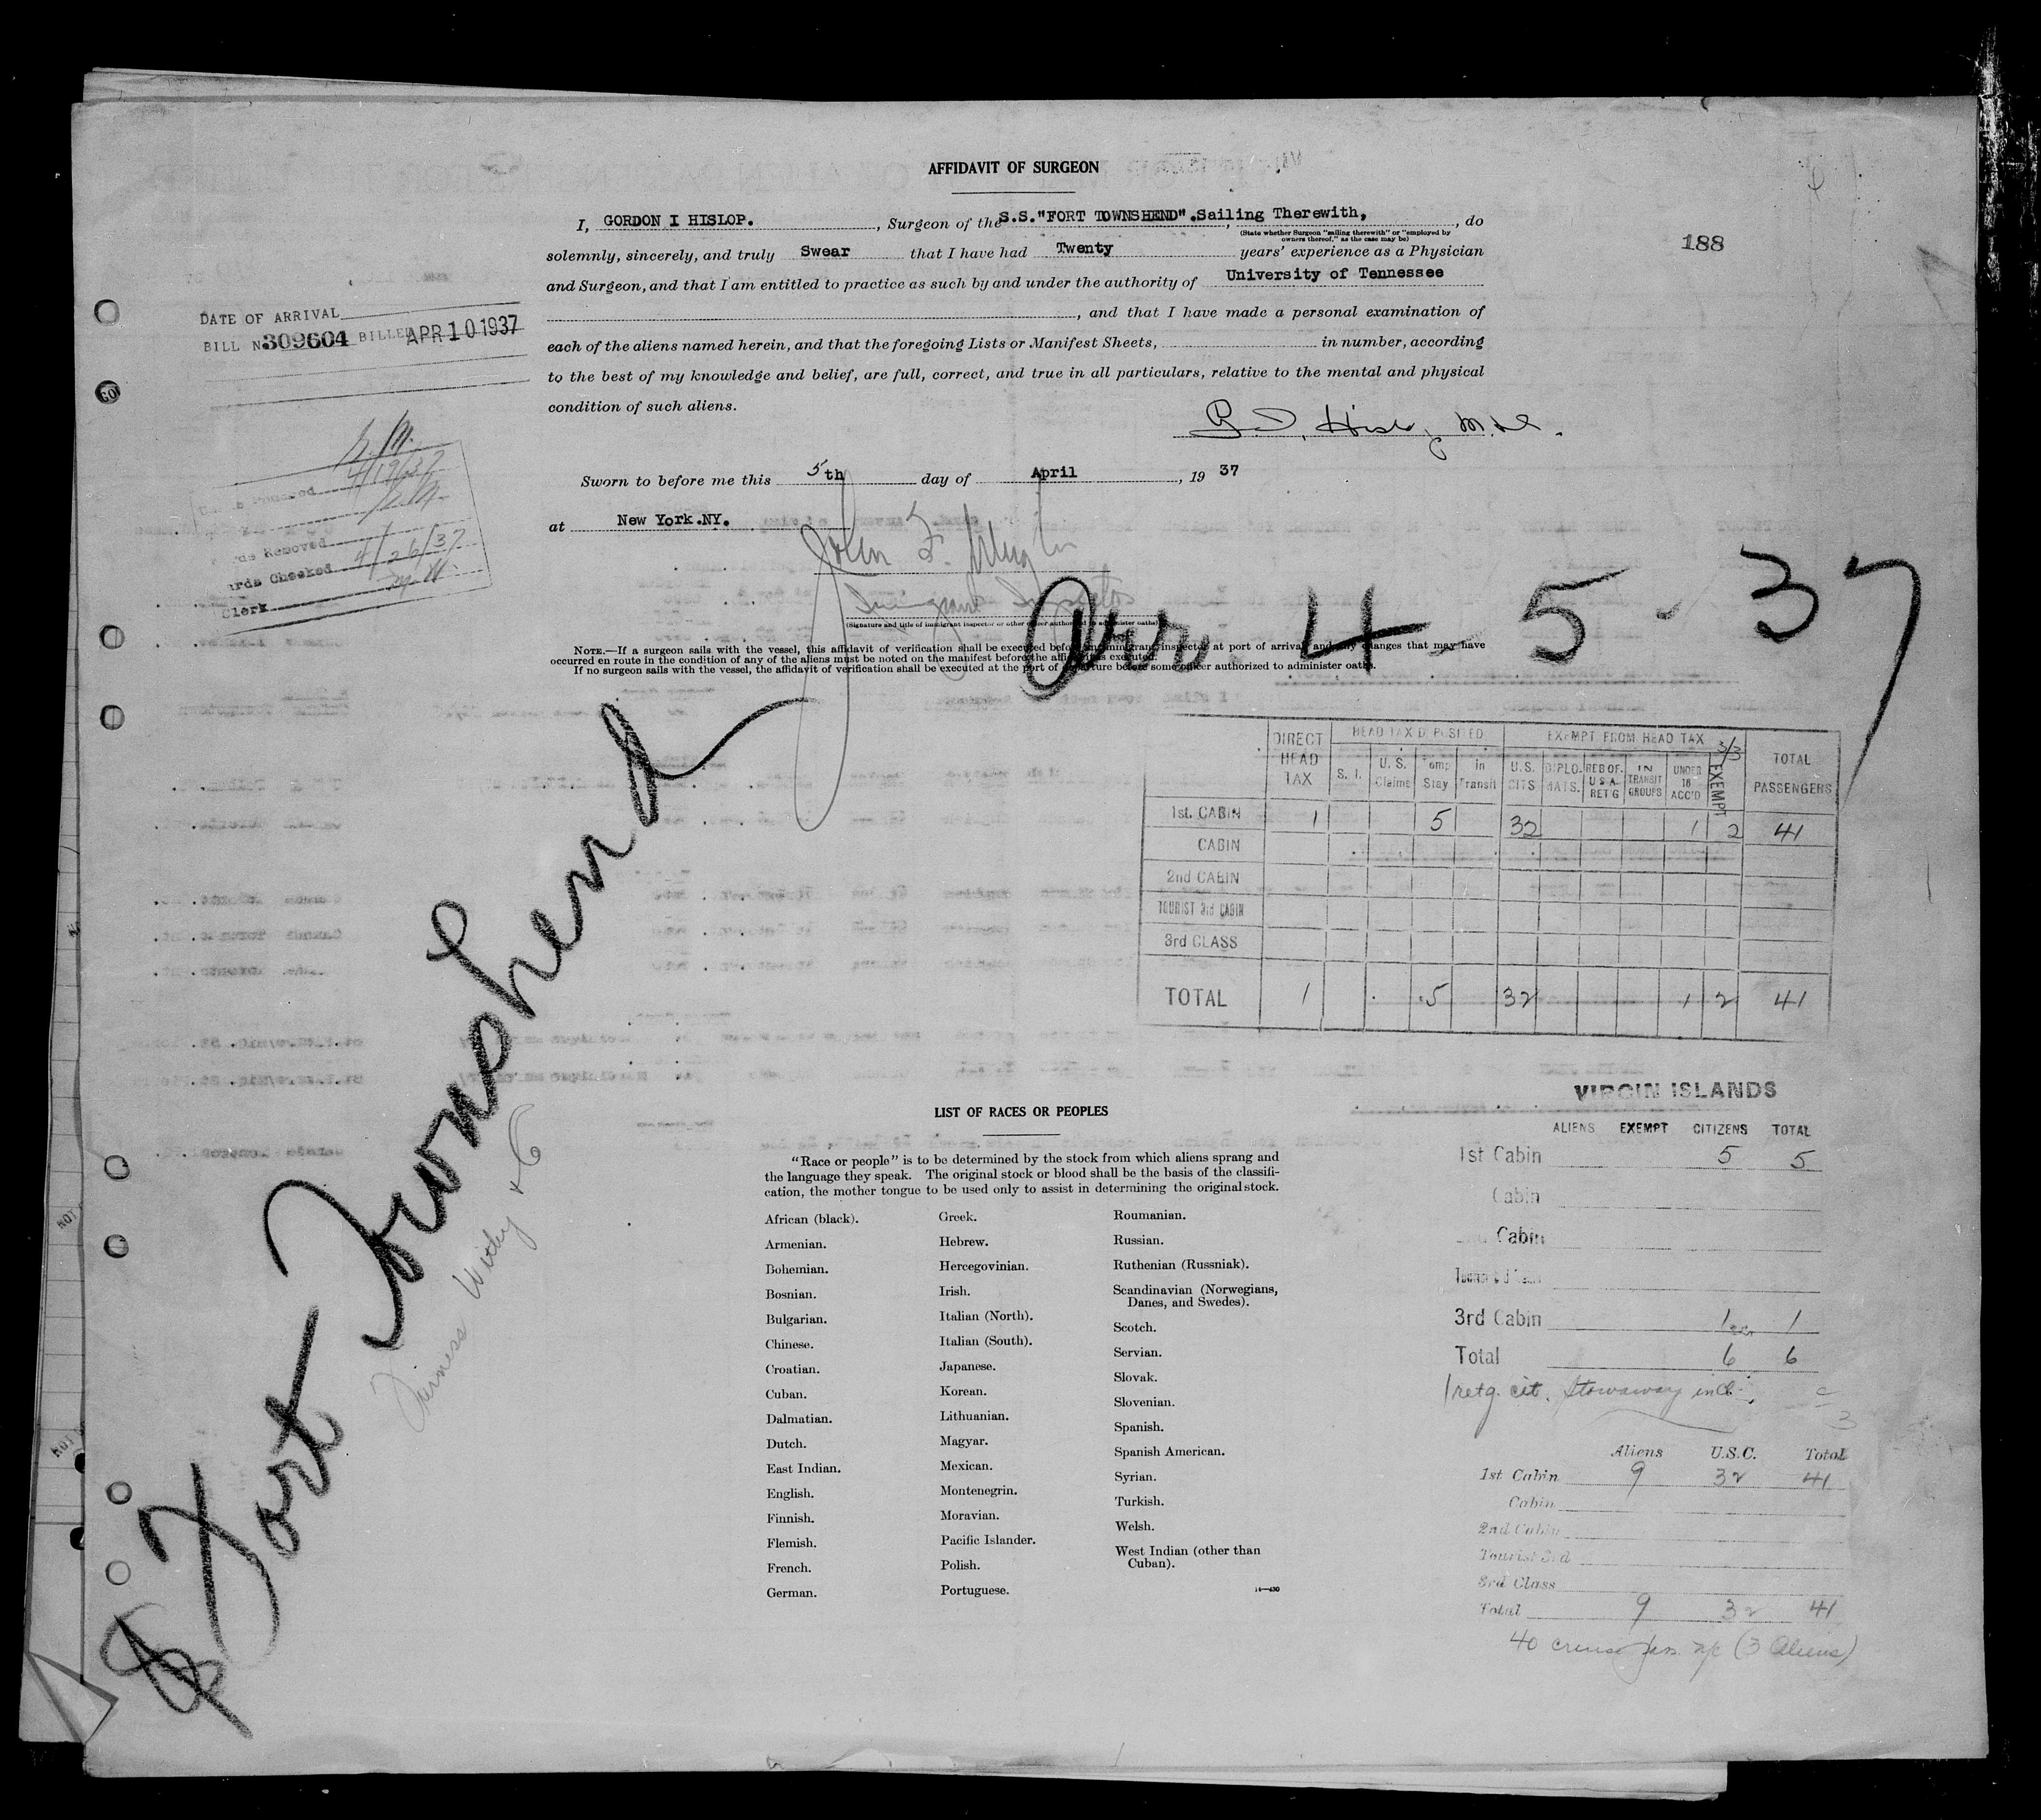 AFFIDAVIT OF SURGEON
I, GORDON I HISLOP. , Surgeon of the S.S."FORT TOWNSHEND".Sailing Therewith, , do
(State whether Surgeon "sailing therewith" or "employed by
owners thereof," as the case may be)
188
solemnly, sincerely, and truly Swear that I have had Twenty years' experience as a Physician
and Surgeon, and that I am entitled to practice as such by and under the authority of University of Tennessee
, and that I have made a personal examination of
each of the aliens named herein, and that the foregoing Lists or Manifest Sheets, in number, according
to the best of my knowledge and belief, are full, correct, and true in all particulars, relative to the mental and physical
condition of such aliens.
DATE OF ARRIVAL
BILL N 309604 BILLED APR 10 1937
G. I. Hislop M.D.
4/19/37
Removed
Cards Checked 4/26/37
Clerk
Sworn to before me this 5th day of April , 19 37
at New York.NY.
John F.
Immigrant Inspector
(Signature and title of immigrant inspector or other officer authorized to administer oaths)
Arr. 4 - 5 - 37
NOTE.—If a surgeon sails with the vessel, this affidavit of verification shall be executed before an immigrant inspector at port of arrival and any changes that may have
occurred en route in the condition of any of the aliens must be noted on the manifest before the affidavit is executed.
If no surgeon sails with the vessel, the affidavit of verification shall be executed at the port of departure before some officer authorized to administer oaths.
Fort Townshend
Furness Withy & Co
DIRECT HEAD TAX HEAD TAX DEPOSITED EXEMPT FROM HEAD TAX 3/3 TOTAL PASSENGERS
S. I. U. S. Claims Temp Stay in Transit U.S. CITS DIPLO-MATS. RES OF U S A RET'G IN TRANSIT GROUPS UNDER 16 ACC'D EXEMPT
1st. CABIN 1 5 32 1 2 41
CABIN
2nd CABIN
TOURIST 3rd CABIN
3rd CLASS
TOTAL 1 5 32 1 2 41
LIST OF RACES OR PEOPLES
"Race or people" is to be determined by the stock from which aliens sprang and
the language they speak. The original stock or blood shall be the basis of the classifi-
cation, the mother tongue to be used only to assist in determining the original stock.
African (black).
Armenian.
Bohemian.
Bosnian.
Bulgarian.
Chinese.
Croatian.
Cuban.
Dalmatian.
Dutch.
East Indian.
English.
Finnish.
Flemish.
French.
German.
Greek.
Hebrew.
Hercegovinian.
Irish.
Italian (North).
Italian (South).
Japanese.
Korean.
Lithuanian.
Magyar.
Mexican.
Montenegrin.
Moravian.
Pacific Islander.
Polish.
Portuguese.
Roumanian.
Russian.
Ruthenian (Russniak).
Scandinavian (Norwegians,
Danes, and Swedes).
Scotch.
Servian.
Slovak.
Slovenian.
Spanish.
Spanish American.
Syrian.
Turkish.
Welsh.
West Indian (other than
Cuban).
VIRGIN ISLANDS
ALIENS EXEMPT CITIZENS TOTAL
1st Cabin 5 5
Cabin
Cabin
3rd Cabin 1 1
Total 6 6
1 retg. cit. stowaway incl.
Aliens U.S.C. Total
1st Cabin 9 32 41
Cabin
2nd Cabin
Tourist 3rd
3rd Class
Total 9 32 41
40 cruise pass. (3 Aliens)